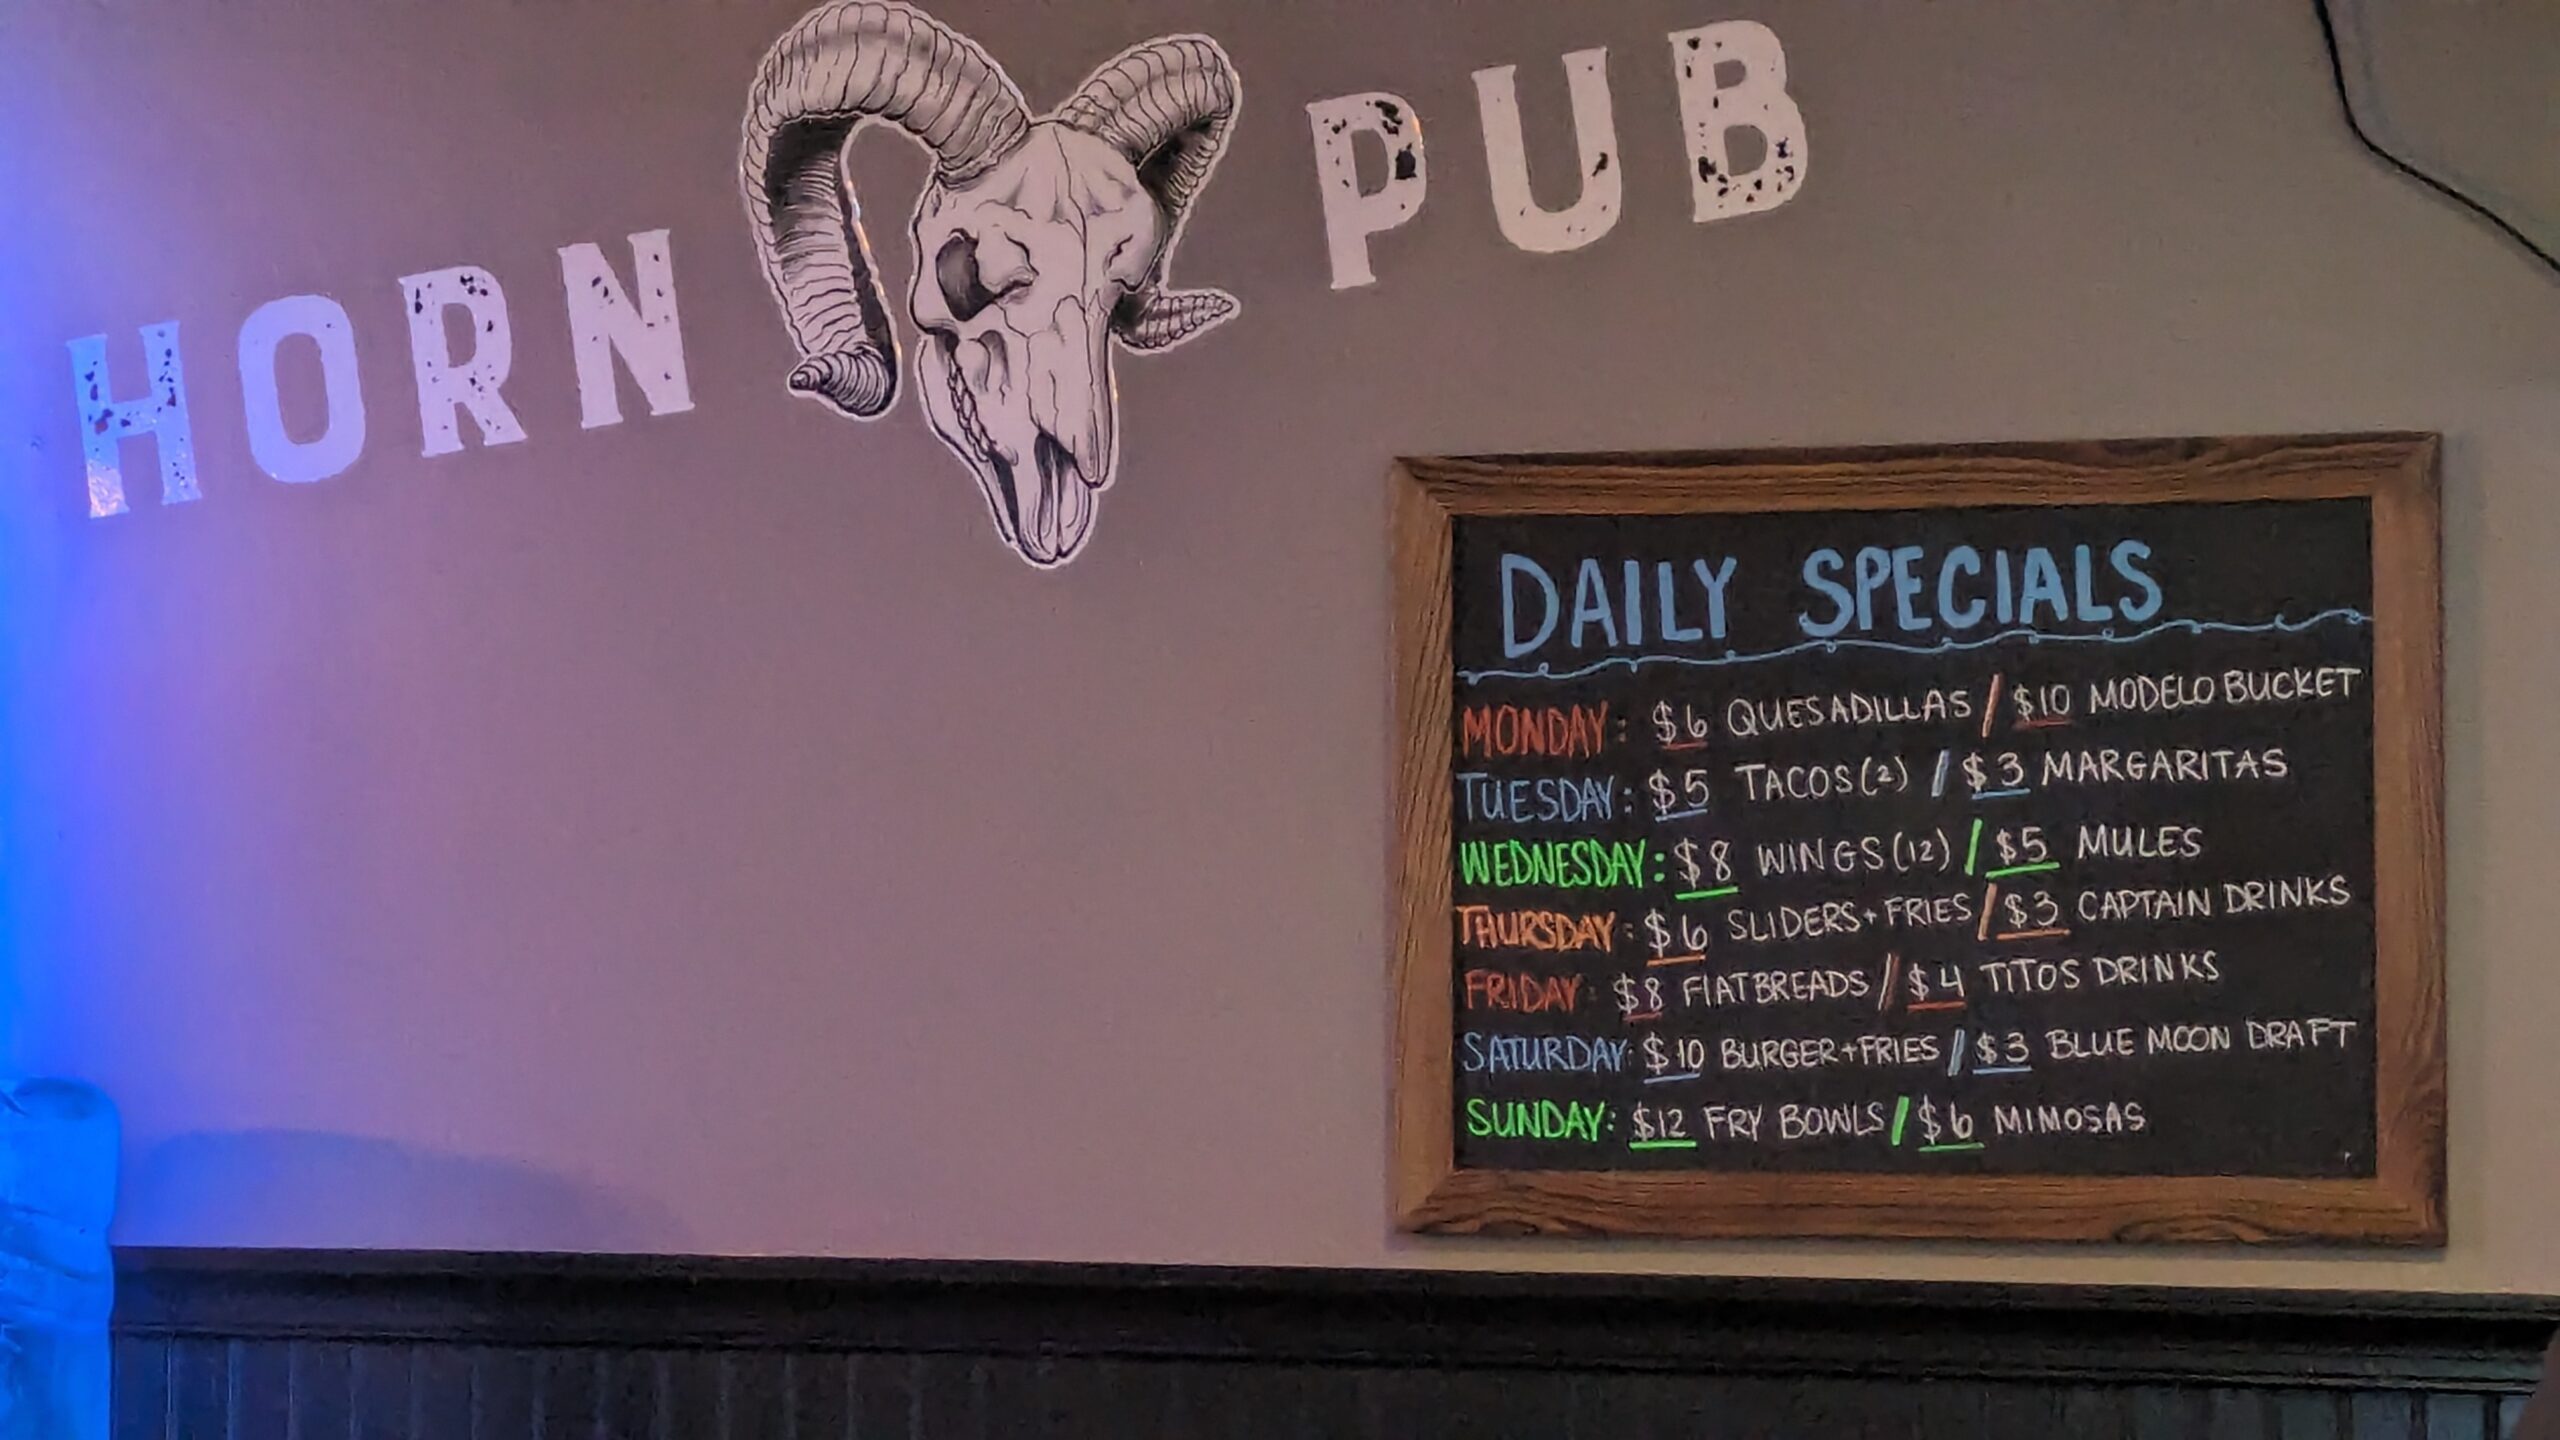 HORN PUB
DAILY SPECIALS
MONDAY: $6 QUESADILLAS / $10 MODELO BUCKET
TUESDAY: $5 TACOS(2) / $3 MARGARITAS
WEDNESDAY: $8 WINGS(12) / $5 MULES
THURSDAY: $6 SLIDERS+FRIES / $3 CAPTAIN DRINKS
FRIDAY: $8 FLATBREADS / $4 TITOS DRINKS
SATURDAY: $10 BURGER+FRIES / $3 BLUE MOON DRAFT
SUNDAY: $12 FRY BOWLS / $6 MIMOSAS